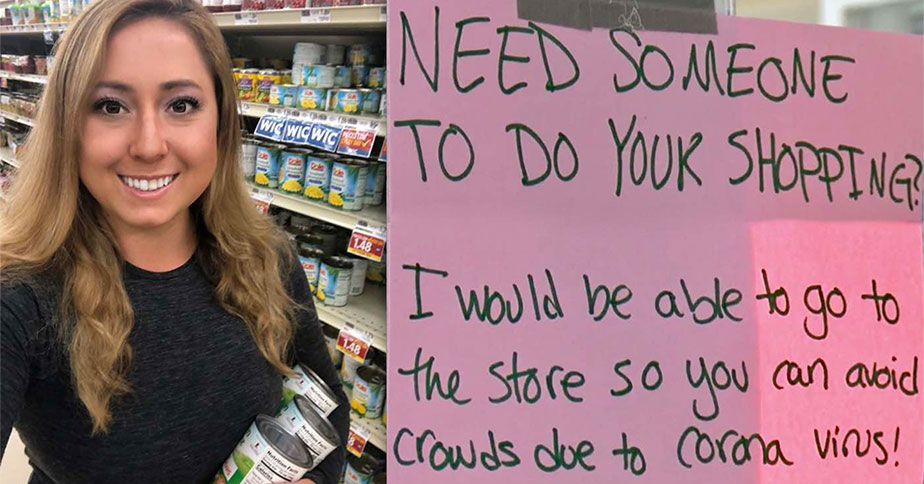 WIC WIC WIC
1.48
1.48
Nutrition Facts
Calories
NEED SOMEONE
TO DO YOUR SHOPPING?
I would be able to go to
the store so you can avoid
crowds due to corona virus!